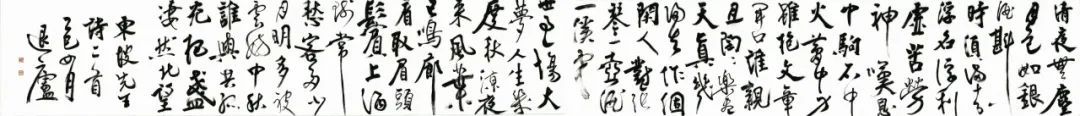 清夜無塵
月色如銀
酒斟
時須滿十分
浮名浮利
虛苦勞
神嘆隙
中駒石中
火夢中身
雖抱文章
開口誰親
且陶陶樂盡
天真幾
時歸去作個
閒人對一張
琴一壺酒
一溪雲
世事一場大
夢人生幾
度秋涼夜
來風葉
已鳴廊
看取眉頭
鬢眉上酒
賤常
愁客多少
月明多被
雲妨中秋
誰與共孤
光把盞
淒然北望
東坡先生
詩二首
乙巳四月
退廬